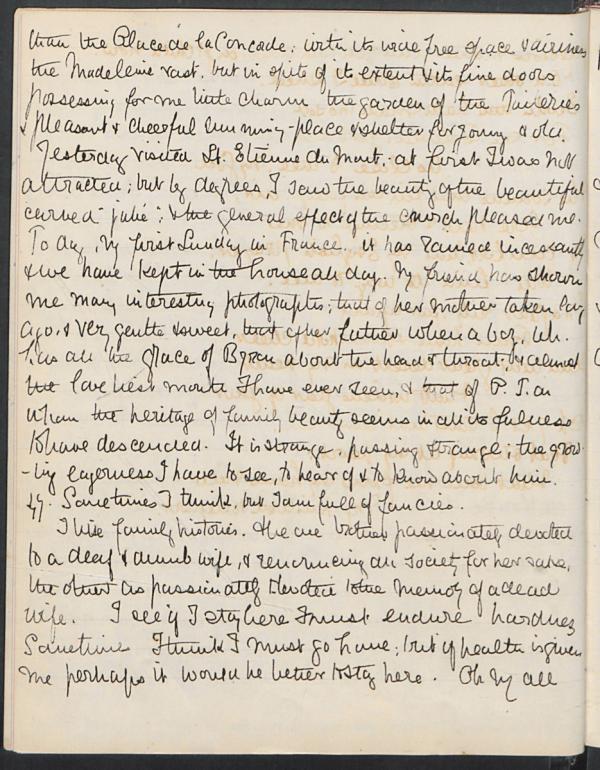 than the Place de la Concorde; with its wide free space & airiness
the Madeleine vast, but in spite of its extent & its fine doors
possessing for me little charm the garden of the Tuileries
a pleasant & cheerful running-place & shelter for young & old.
Yesterday visited St. Etienne du Mont, at first I was not
attracted; but by degrees, I saw the beauty of the beautiful
carved "jubé"; & the general effect of the church pleased me.
To day, my first Sunday in France. it has rained incessantly
& we have kept in the house all day. My friend has shown
me many interesting photographs; that of her mother taken long
ago, & very gentle & sweet, that of her father when a boy, wh.
has all the grace of Byron about the head & throat, & almost
the loveliest mouth I have ever seen, & that of P. J. on
whom the heritage of family beauty seems in all its fulness
to have descended. It is strange, passing strange; the grow-
-ing eagerness I have to see, to hear of & to know about him.
Sometimes I think, but I am full of fancies.
I like family histories. The one brother passionately devoted
to a deaf & dumb wife, & renouncing all society for her sake,
the other as passionately devoted to the memory of a dead
wife. I see if I stay here I must endure hardness
Sometimes I think I must go home; but if health is given
me perhaps it would be better to stay here. Oh my all